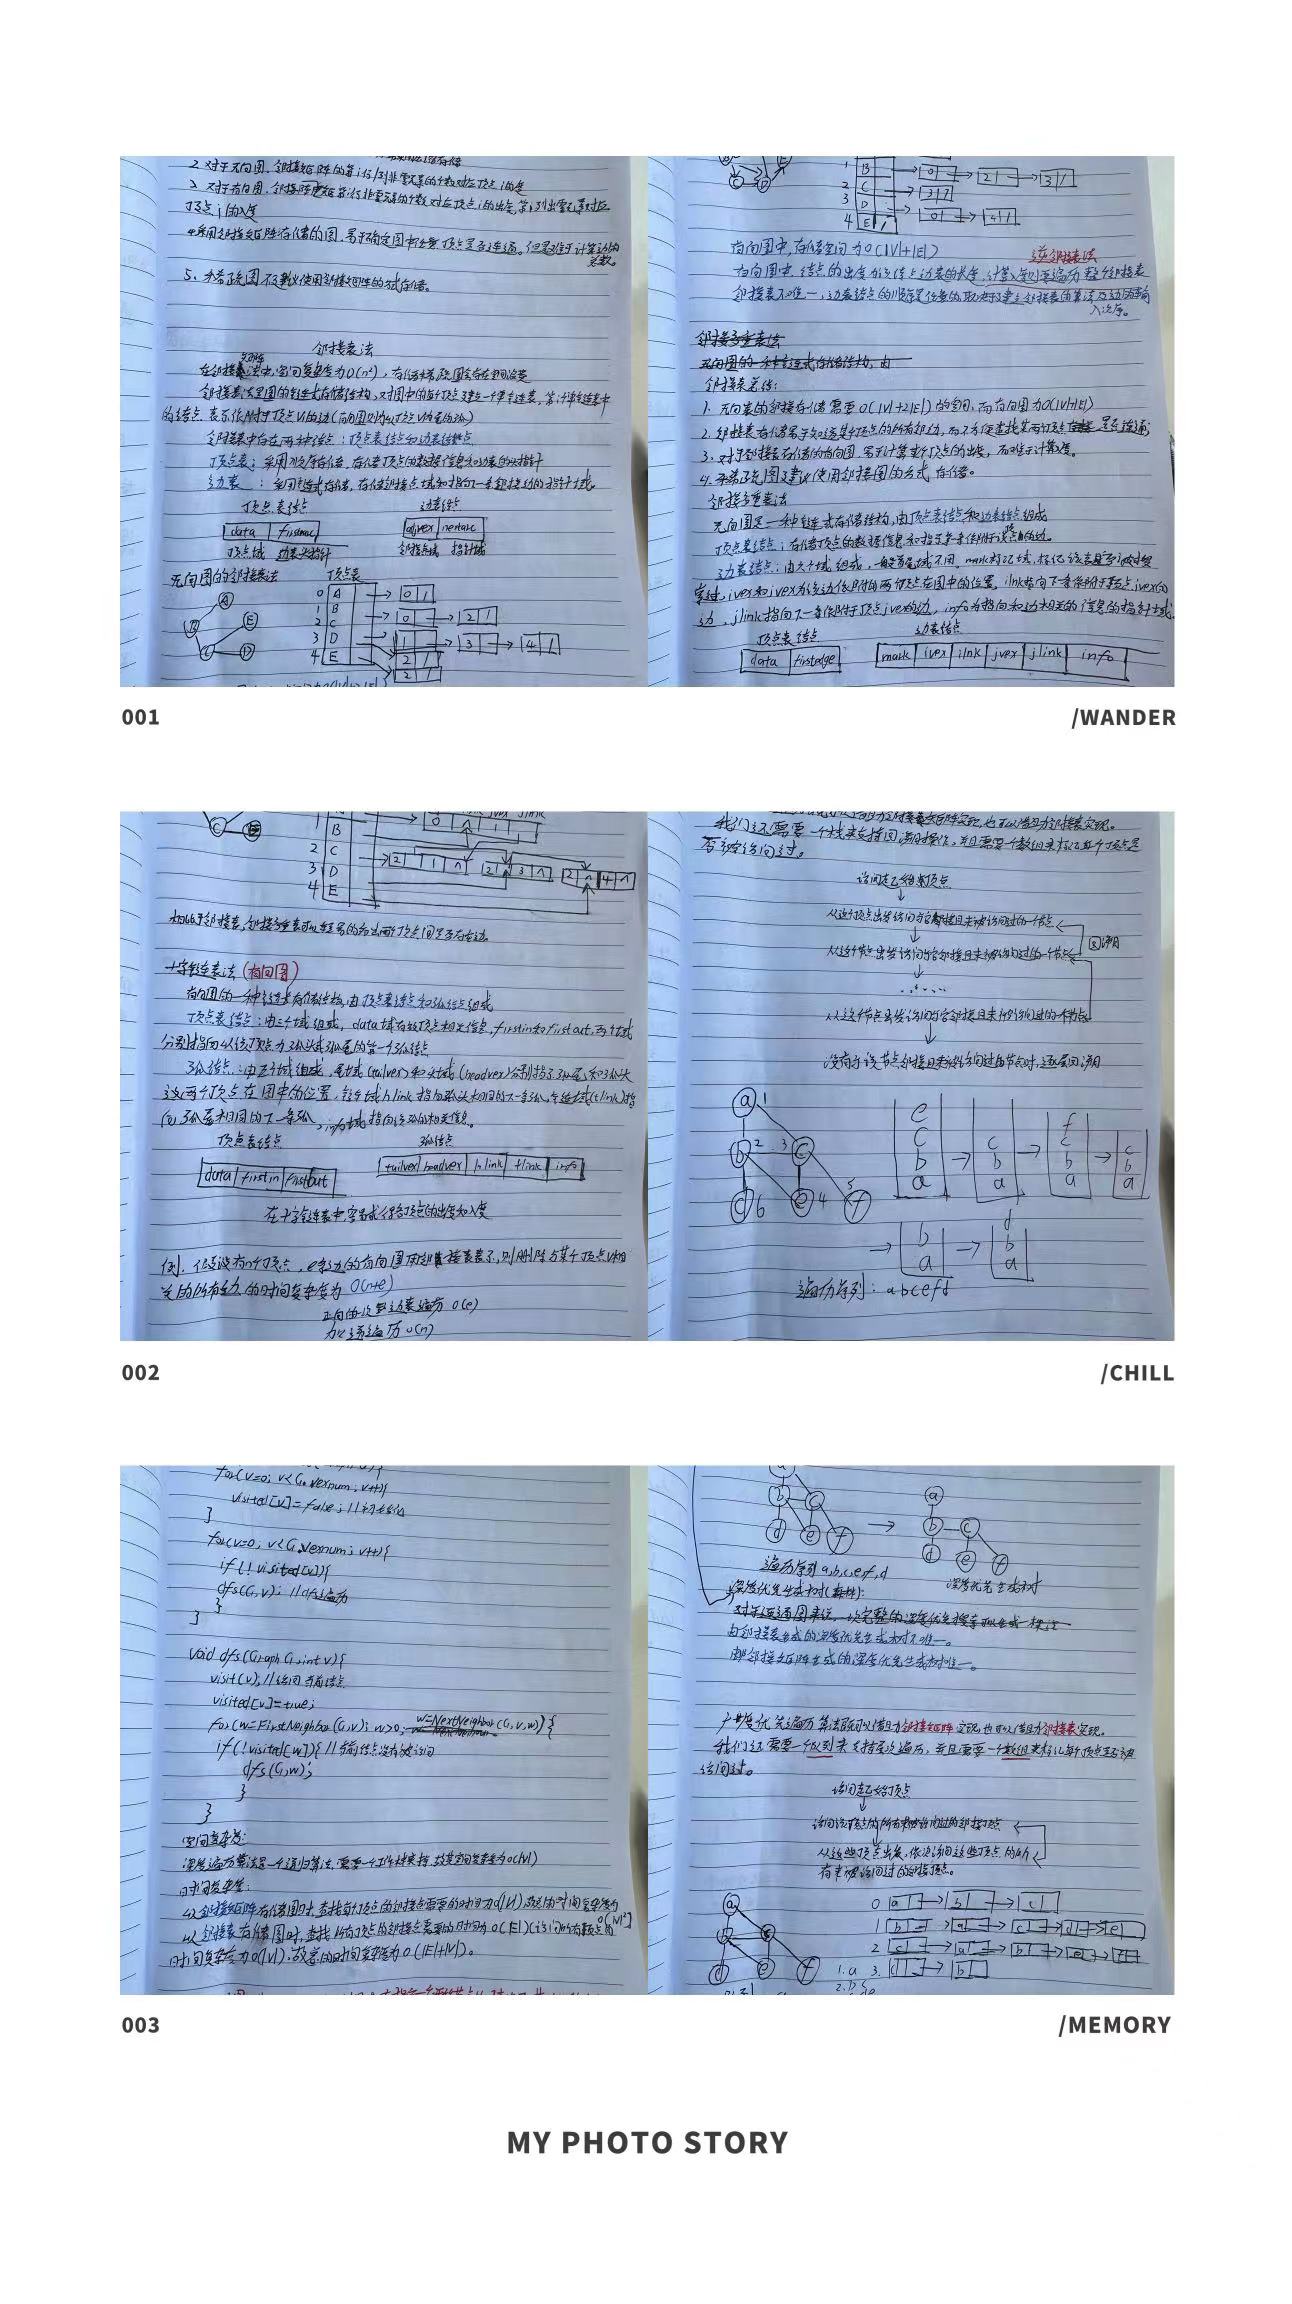 2. 对于无向图,邻接矩阵的第i行/列非零元素的个数对应顶点i的度
3. 对于有向图,邻接矩阵第i行非零元素的个数对应顶点i的出度,第i列非零元素对应
顶点i的入度
4. 采用邻接矩阵存储的图,易于确定图中任意顶点是否连通。但是难于计算边的
总数。
5. 稀疏图不建议使用邻接矩阵的方式存储。
邻接表法
在邻接矩阵法中,空间复杂度为O(n²),存储稀疏图会存在空间浪费
邻接表法是图的链式存储结构,对图中的每个顶点建立一个单链表,第i个单链表中
的结点表示依附于顶点Vi的边(有向图则为以顶点Vi为尾的弧)
邻接表中存在两种结点:顶点表结点和边表结点
顶点表:采用顺序存储,存储顶点的数据信息和边表的头指针
边表:采用链式存储,存储邻接点域和指向下一条邻接边的指针域。
顶点表结点 边表结点
data firstarc adjvex nextarc
顶点域 边表头指针 邻接点域 指针域
无向图的邻接表法 顶点表
0 A 0 /
1 B 0 2 /
2 C 3 4 /
3 D 2 /
4 E 2 /
A B C D E
1 B 0 2 3 /
2 C 3 /
3 D 0 4 /
4 E /
有向图中,存储空间为O(|V|+|E|)
逆邻接表法
有向图中,结点的出度为该结点边表的长度,计算入度则要遍历整个邻接表
邻接表不唯一,边表结点的顺序是任意的,取决于建立邻接表的算法及边的输
入次序。
邻接多重表法
无向图的一种链式存储结构,由
邻接表总结:
1. 无向表的邻接存储需要O(|V|+2|E|)的空间,而有向图为O(|V|+|E|)
2. 邻接表存储易于知道某个顶点的所有邻边,而不方便查找某两顶点是否连通
3. 对于邻接表存储的有向图,易于计算某个顶点的出度,而难于计算入度。
4. 稀疏图建议使用邻接图的方式存储。
邻接多重表法
无向图是一种链式存储结构,由顶点表结点和边表结点组成
顶点表结点:存储顶点的数据信息和指示第一条依附于该顶点的边。
边表结点:由六个域组成,一般首尾域不用,mark为标记域,标记该表是否被搜
索过,ivex和jvex为该边依附的两个顶点在图中的位置,ilink指向下一条依附于顶点ivex的
边,jlink指向下一条依附于顶点jvex的边,info为指向和边相关的信息的指针域
顶点表结点 边表结点
data firstedge mark ivex ilink jvex jlink info
001 /WANDER
C
1 B
2 C
3 D
4 E
相比于邻接表,邻接多重表可以轻易的看出两个顶点间是否存在边。
十字链表法(有向图)
有向图的一种链式存储结构,由顶点表结点和弧结点组成
顶点表结点:由三个域组成,data域存放顶点相关信息,firstin和firstout,两个域
分别指向以该顶点为弧头或弧尾的第一个弧结点
弧结点:由五个域组成,尾域(tailvex)和头域(headvex)分别指示弧尾和弧头
这两个顶点在图中的位置,链域hlink指向弧头相同的下一条弧,链域(tlink)指
向弧尾相同的下一条弧,info域指向该弧的相关信息。
顶点表结点 弧结点
data firstin firstout tailvex headvex hlink tlink info
在十字链表中,容易求得顶点的出度和入度
例. 假设有n个顶点,e条边的有向图用邻接表表示,则删除与某个顶点v相
关的所有边的时间复杂度为 O(n+e)
O(e)
遍历 O(n)
我们还需要一个栈来支持回溯操作,并且需要一个数组来标记每个顶点是
否被访问过。
访问起始顶点
从这个顶点出发访问与它邻接且未被访问过的一个节点
回溯
从这个节点出发访问与它邻接且未被访问过的一个节点
......
从这个节点出发访问与它邻接且未被访问过的一个节点
没有与该节点邻接且未被访问过的节点时,逐层回溯
a 1
b 2 3 c
d 6 e 4 5 f
e c b a
c b a
f c b a
c b a
b a
d b a
遍历序列:abcefd
002 /CHILL
for(v=0; v<G.vexnum; v++){
visited[v]=false; //初始化
}
for(v=0; v<G.vexnum; v++){
if(!visited[v]){
dfs(G,v); //dfs遍历
}
}
void dfs(Graph G,int v){
visit(v); //访问当前结点
visited[v]=true;
for(w=FirstNeighbor(G,v); w>0; w=NextNeighbor(G,v,w)){
if(!visited[w]){ //当前结点没有被访问
dfs(G,w);
}
}
空间复杂度:
深度遍历算法是一个递归算法,需要一个工作栈来支持,故其空间复杂度为O(|V|)
时间复杂度:
以邻接矩阵存储图时,查找每个顶点的邻接点需要的时间为O(|V|),故总的时间复杂度为
O(|V|²)
以邻接表存储图时,查找所有顶点的邻接点需要的时间为O(|E|)(访问所有顶点的
时间复杂度为O(|V|),故总的时间复杂度为O(|E|+|V|)。
a
b c
d e f
a
b c
d e f
遍历序列 a,b,c,e,f,d
深度优先生成树
深度优先生成树(森林):
对于连通图来说,一次完整的深度优先搜索可以生成一棵
由邻接表生成的深度优先生成树不唯一。
由邻接矩阵生成的深度优先生成树唯一。
广度优先遍历算法既可以借助邻接矩阵实现,也可以借助邻接表实现。
我们还需要一个队列来支持层次遍历,并且需要一个数组来标记每个顶点是否被
访问过。
访问起始顶点
访问该顶点的所有未被访问过的邻接顶点
从这些顶点出发,依次访问这些顶点的所
有未被访问过的邻接顶点。
a
d e f
0 a b c
1 b a c d e
2 c a b e f
3 d b
1. a
003 /MEMORY
MY PHOTO STORY